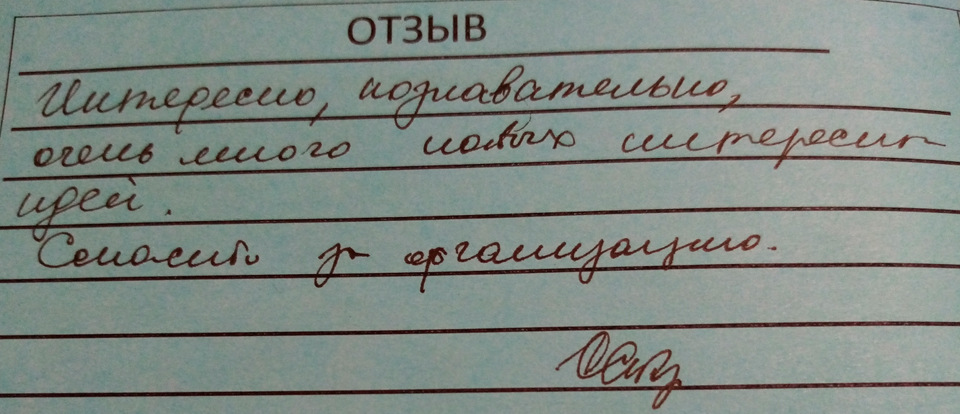 ОТЗЫВ
Интересно, познавательно,
очень много новых интересн
идей.
Спасибо за организацию.